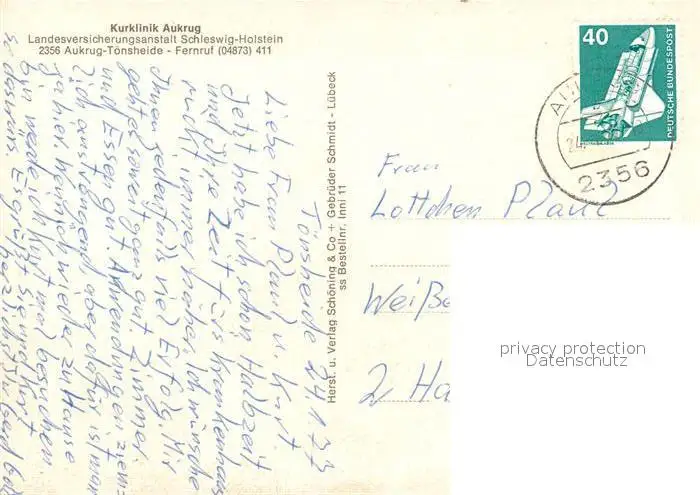 Kurklinik Aukrug
Landesversicherungsanstalt Schleswig-Holstein
2356 Aukrug-Tönsheide - Fernruf (04873) 411
Tönsheide 24.1.77
Liebe Frau Planz u. Kurt.
Jetzt habe ich schon Halbzeit
und Ihre Zeit fürs Krankenhaus
rückt immer näher. Ich wünsche
Ihnen jedenfalls viel Erfolg. Mir
geht es soweit ganz gut. Zimmer
und Essen gut. Anwendungen ziem=
lich anstrengend aber dafür ist man
ja hier. Wenn ich wieder zu Hause
bin werde ich Kurt mal besuchen.
Es grüßt Sie und Kurt
herzlichst
Herst. u. Verlag Schöning & Co + Gebrüder Schmidt - Lübeck
ss Bestellnr. Inni 11
40
DEUTSCHE BUNDESPOST
24.
2356
Frau
Lottchen Planz
Weiße
2 Ha
privacy protection
Datenschutz